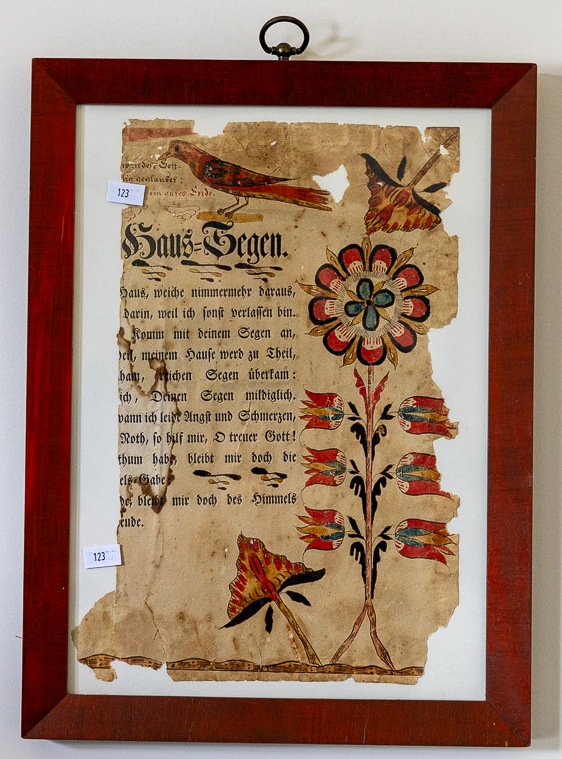 wer der Gott-
geglaubet;
ein gutes Ende.
123
Haus-Segen.
Haus, weiche nimmermehr daraus,
darin, weil ich sonst verlassen bin.
Komm mit deinem Segen an,
meinem Hause werd zu Theil,
reichen Segen überkam:
ich, Deinen Segen mildiglich,
wann ich leide Angst und Schmerzen,
Noth, so hilf mir, O treuer Gott!
thum habe, bleibt mir doch die
els-Gabe
bleibt mir doch des Himmels
eude.
123